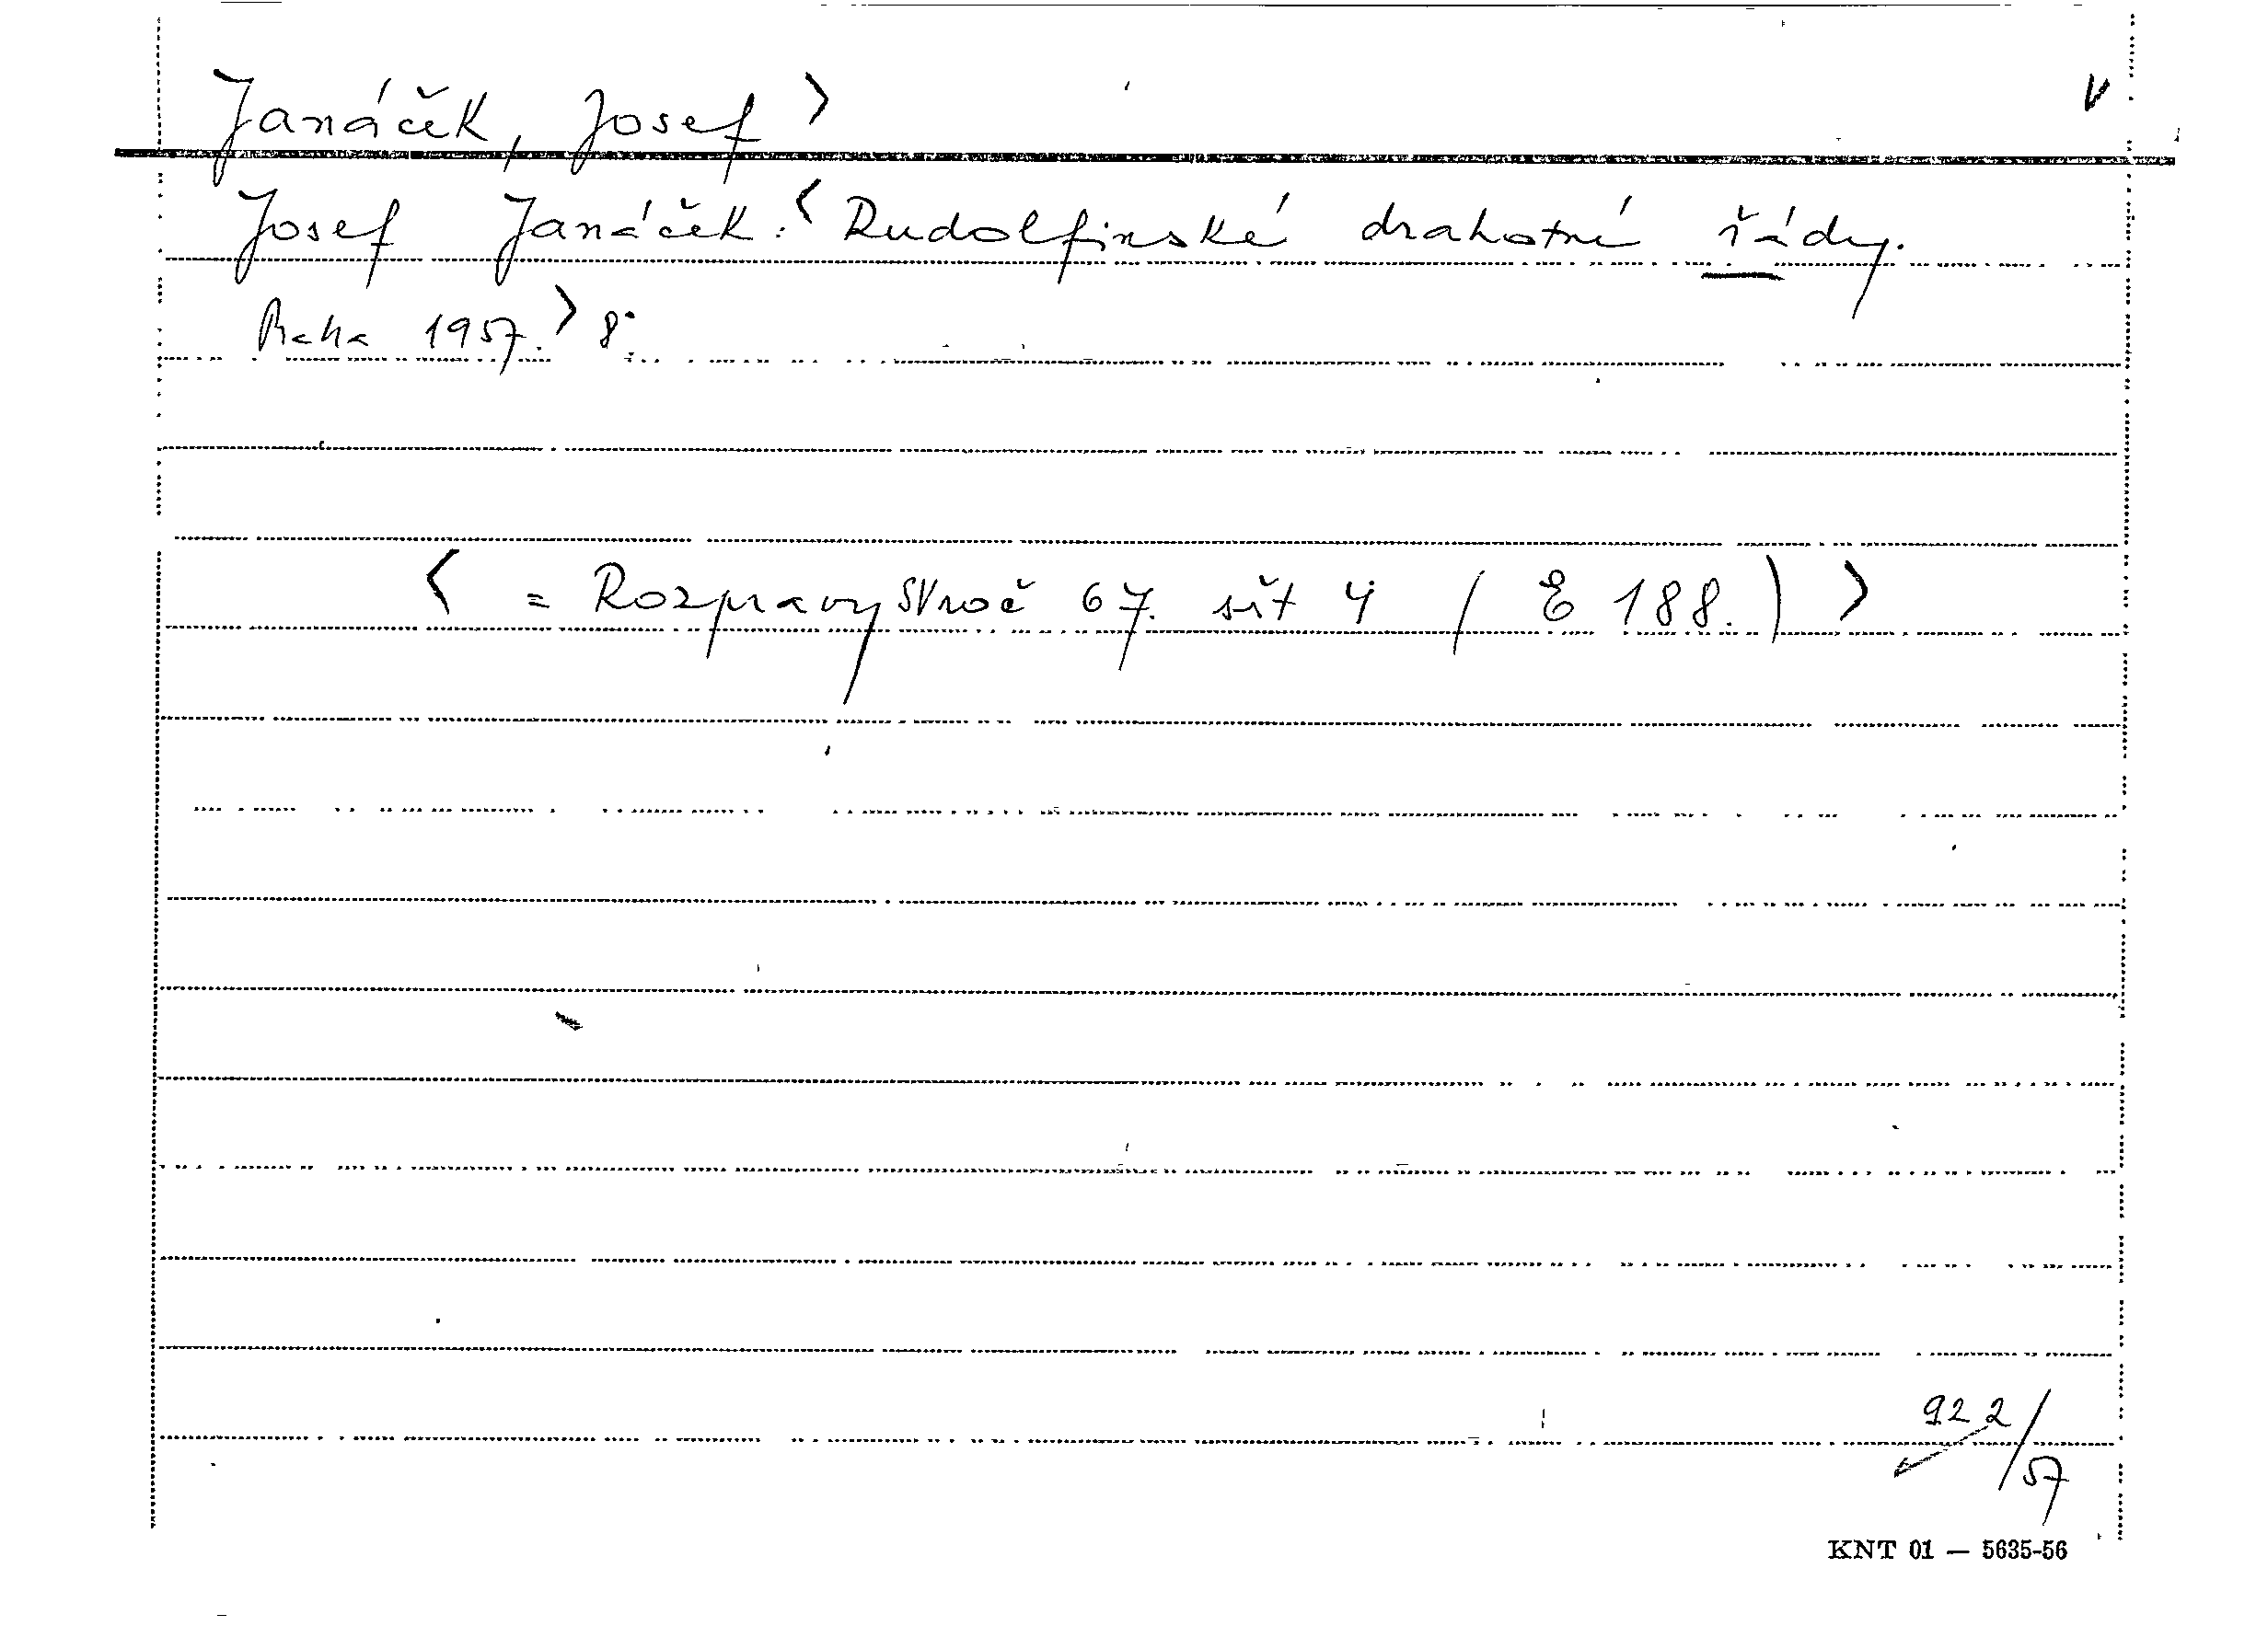 Janáček, Josef >
V
Josef Janáček: < Rudolfinské drahotní řády.
Praha 1957. > 8°.
< = Rozpravy SV roč 67. seš 4 ( E 188. ) >
922/57
KNT 01 — 5635-56